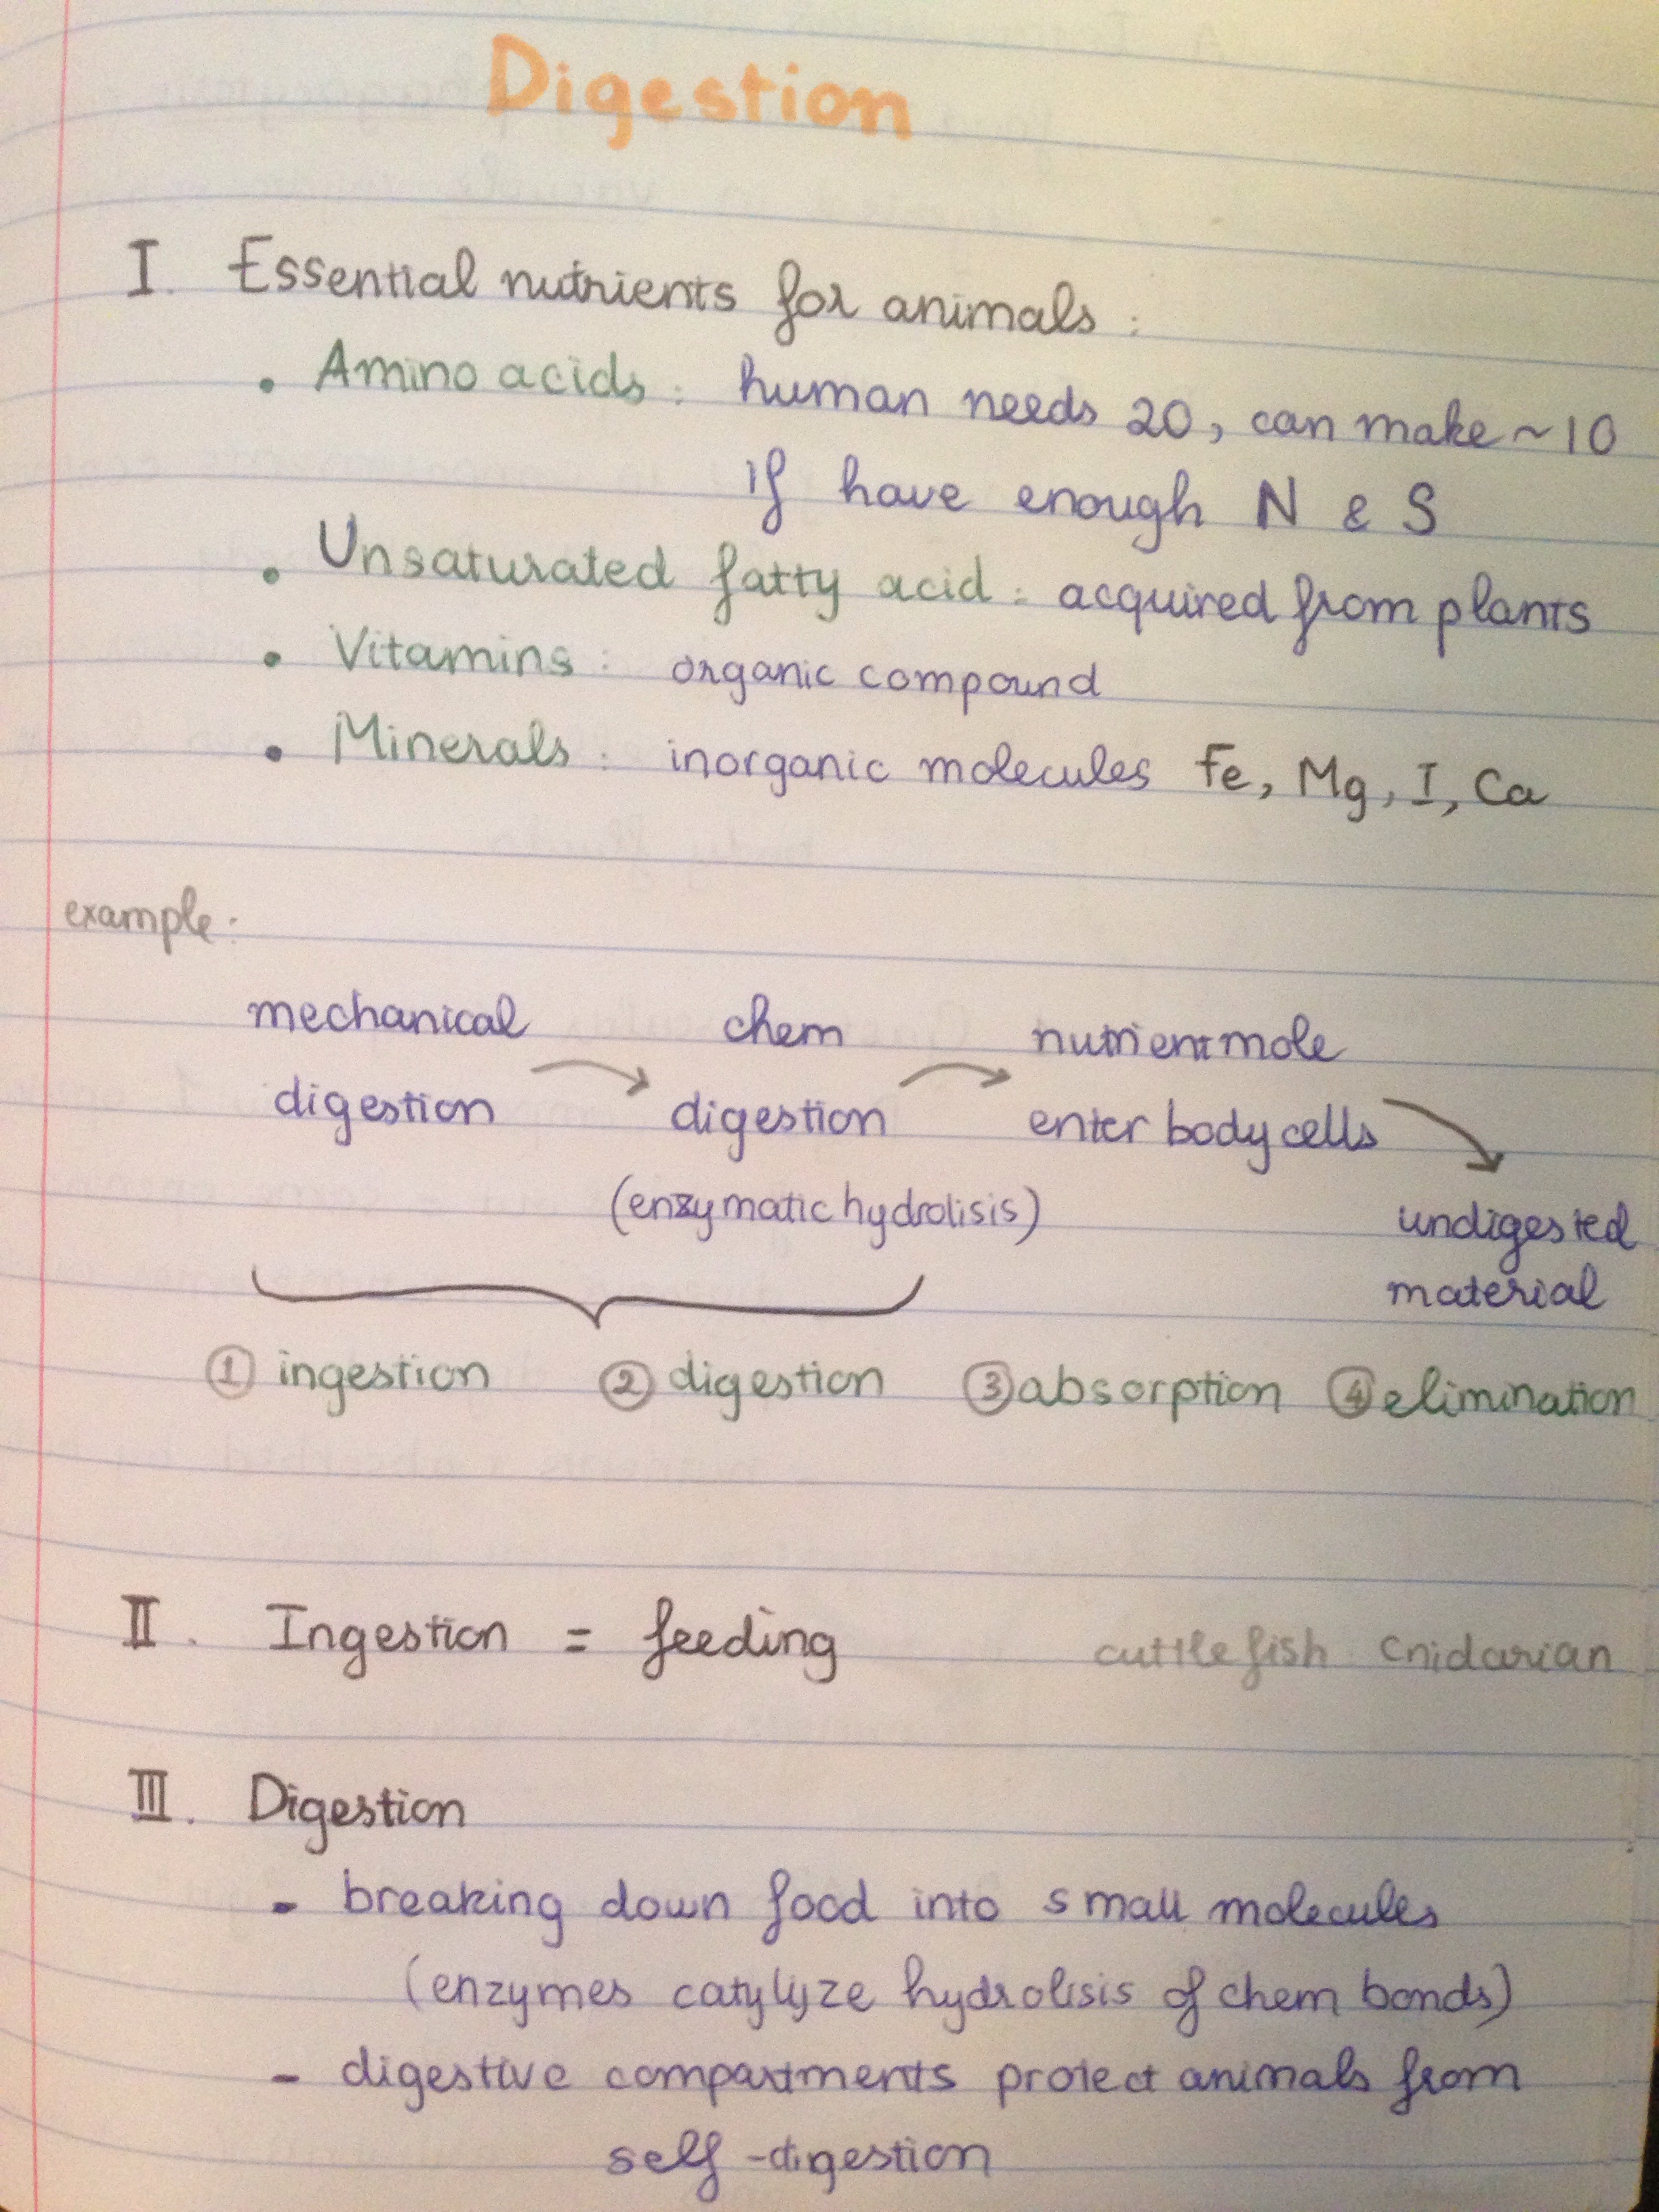 Digestion
I. Essential nutrients for animals:
• Amino acids: human needs 20, can make ~10
if have enough N & S
• Unsaturated fatty acid: acquired from plants
• Vitamins: organic compound
• Minerals: inorganic molecules Fe, Mg, I, Ca
example:
mechanical chem nutrient mole
digestion digestion enter body cells
(enzymatic hydrolisis) undigested
material
① ingestion ② digestion ③ absorption ④ elimination
II. Ingestion = feeding cuttlefish cnidarian
III. Digestion
- breaking down food into small molecules
(enzymes catylyze hydrolisis of chem bonds)
- digestive compartments protect animals from
self-digestion